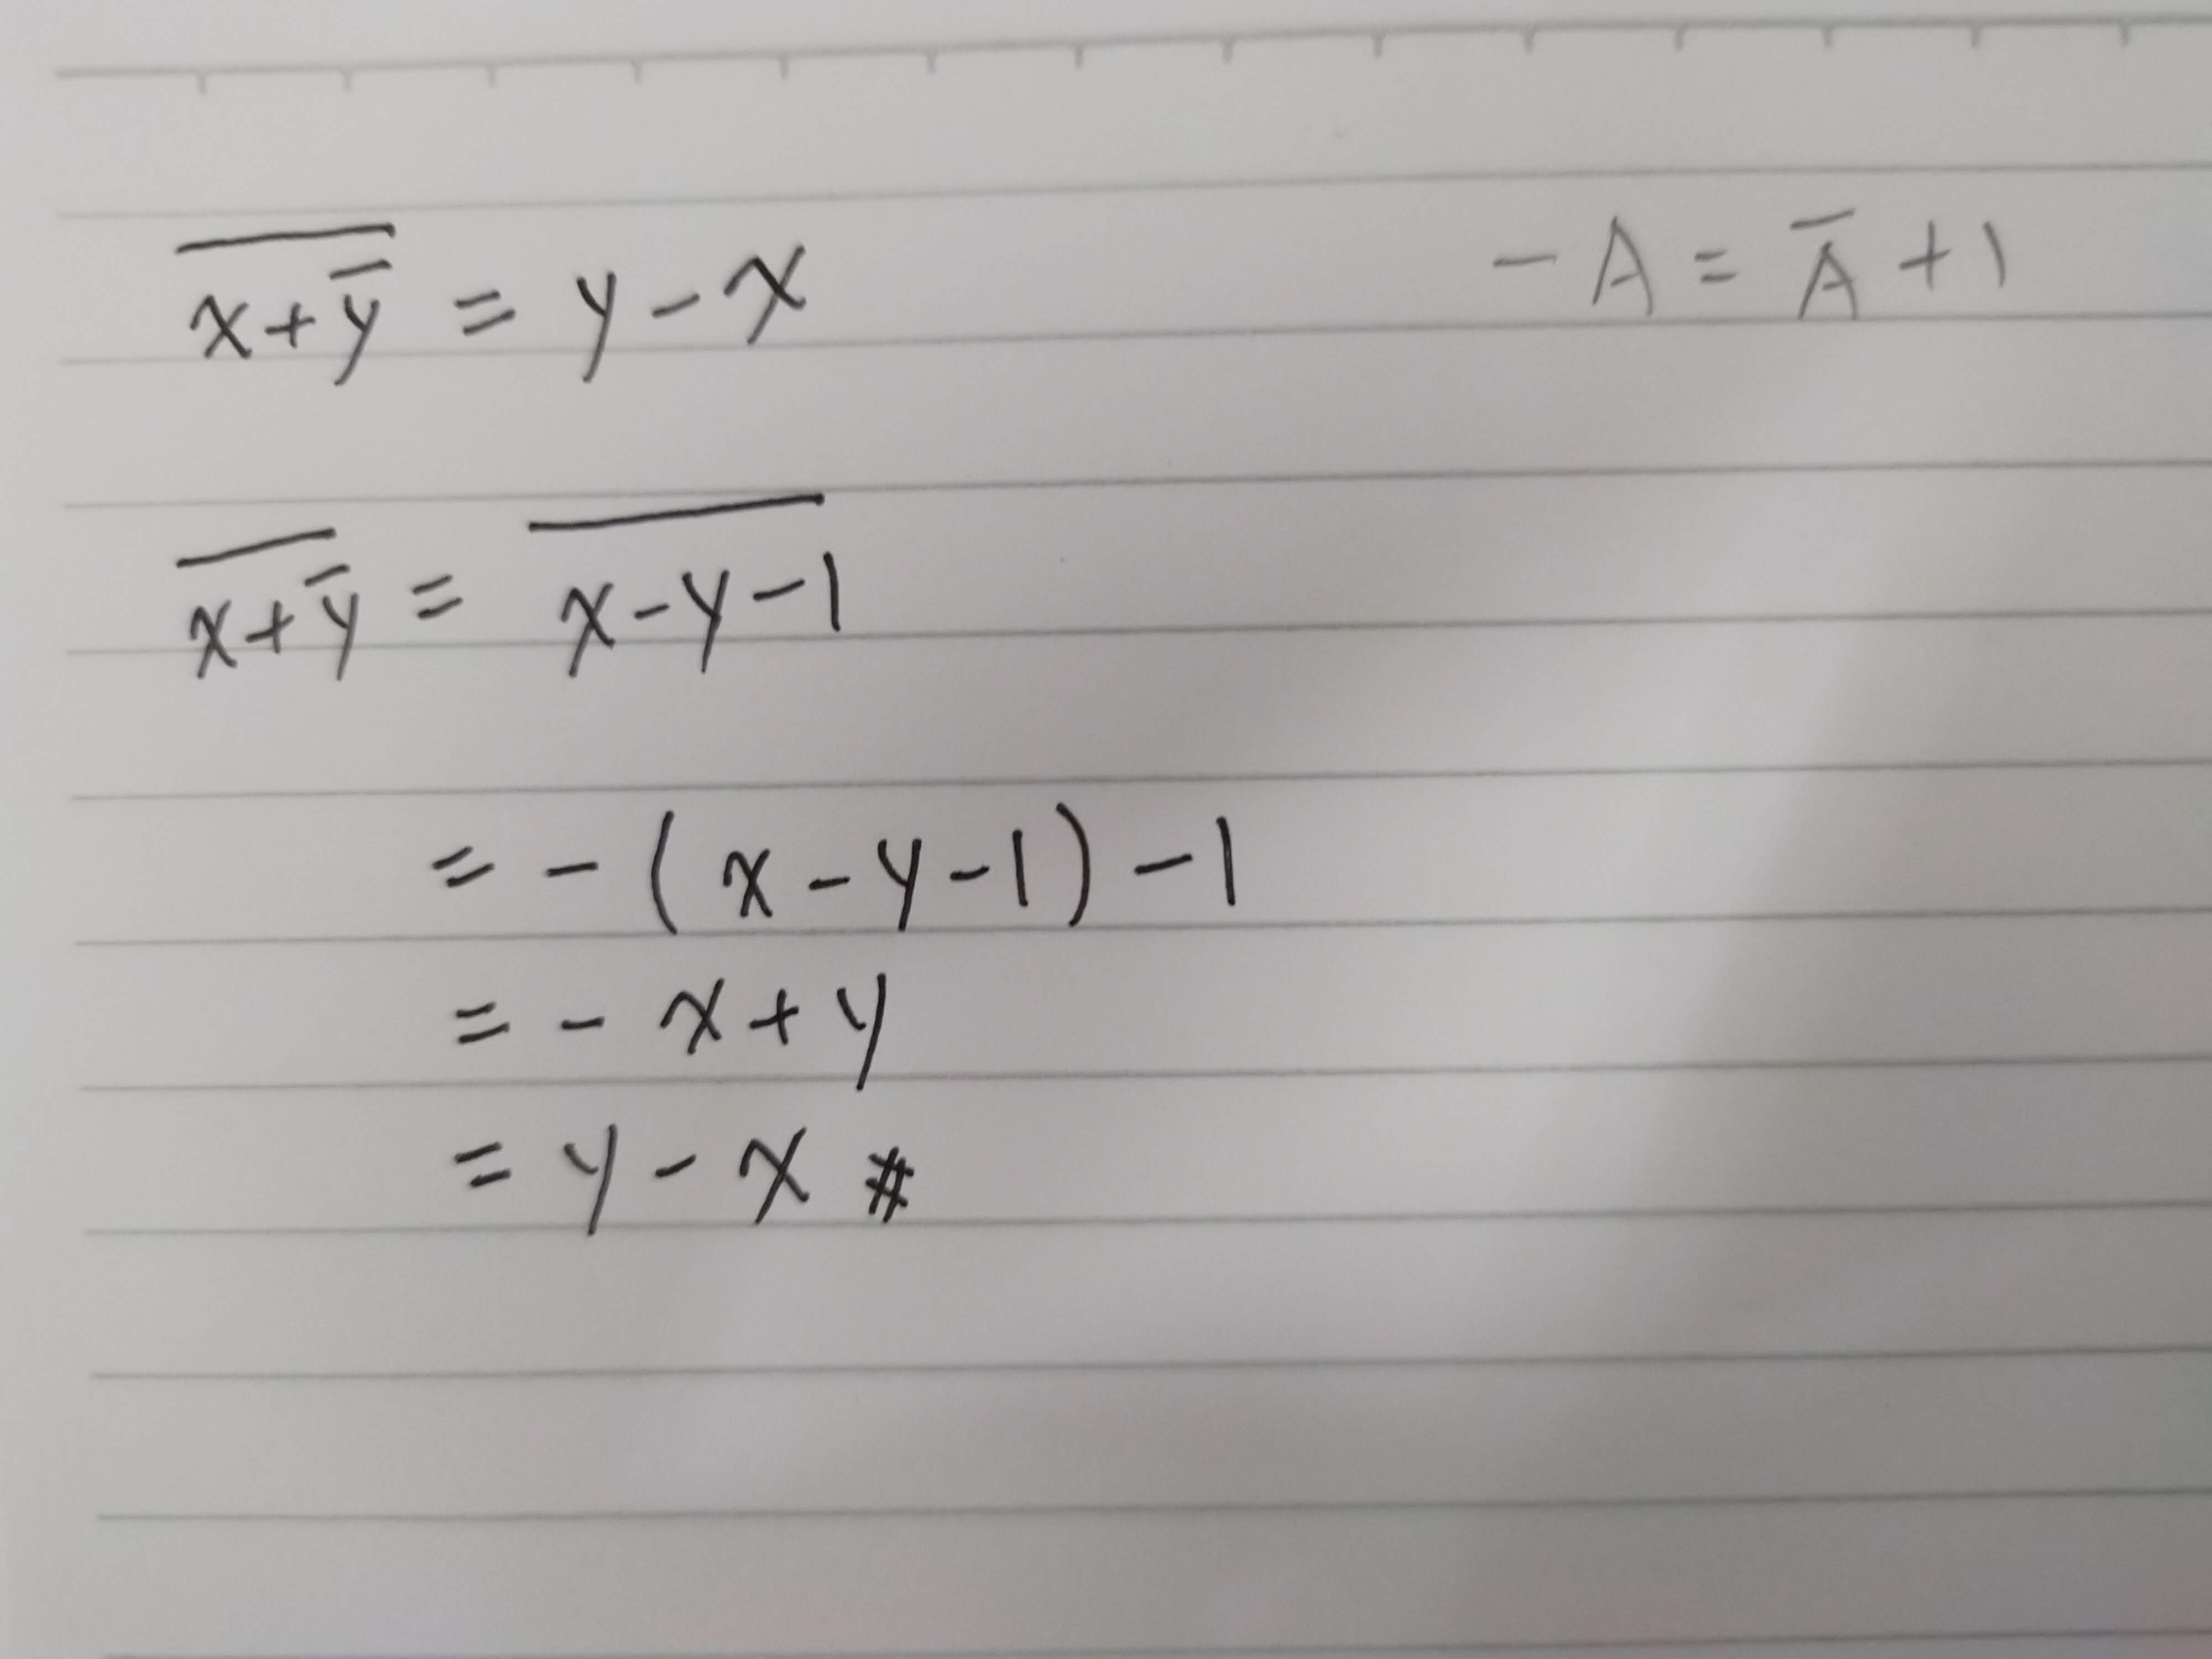 $\overline{x+\overline{y}} = y - x$    $-A = \overline{A} + 1$
$\overline{x+\overline{y}} = \overline{x-y-1}$
$= -(x-y-1)-1$
$= -x+y$
$= y-x$ #